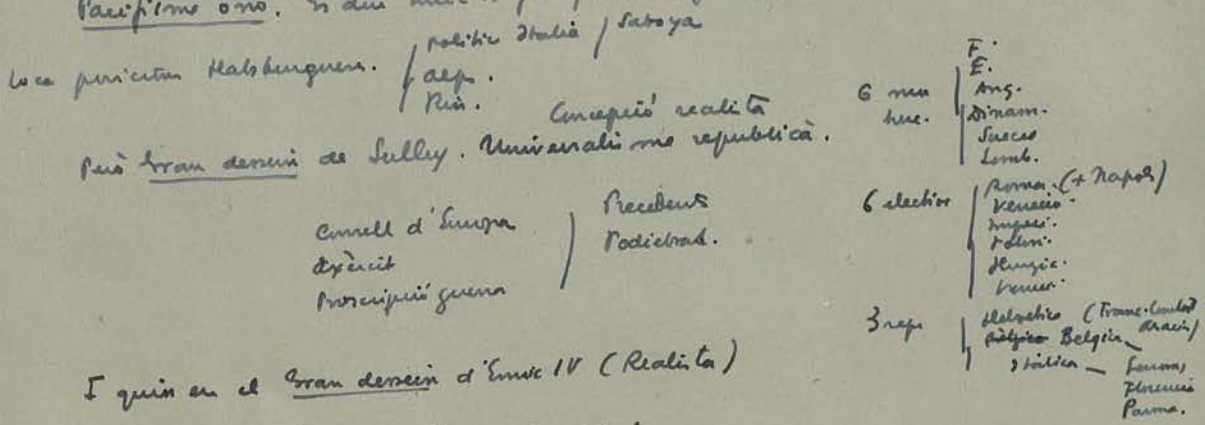 Pacifisme o no. Si
política Italià / Saboya
Habsburguera.
Alp.
Rin.
Concepció realità
Però Gran dessein de Sulley. Universalisme republicà.
Consell d'Europa
Exèrcit
Proscripció guerra
Precedents
Podiebrad.
I quin en el Gran dessein d'Enric IV (Realista)
6
F.
E.
Ang.
Dinam.
Suecia
Lomb.
6 electives
Roma. (+ Napols)
Venecia.
Imperi.
Polon.
Hungria.
3 rep.
Helvetica (Franc-Comtat
Alsacia)
Belgica
Italica — Genova,
Florencia
Parma.